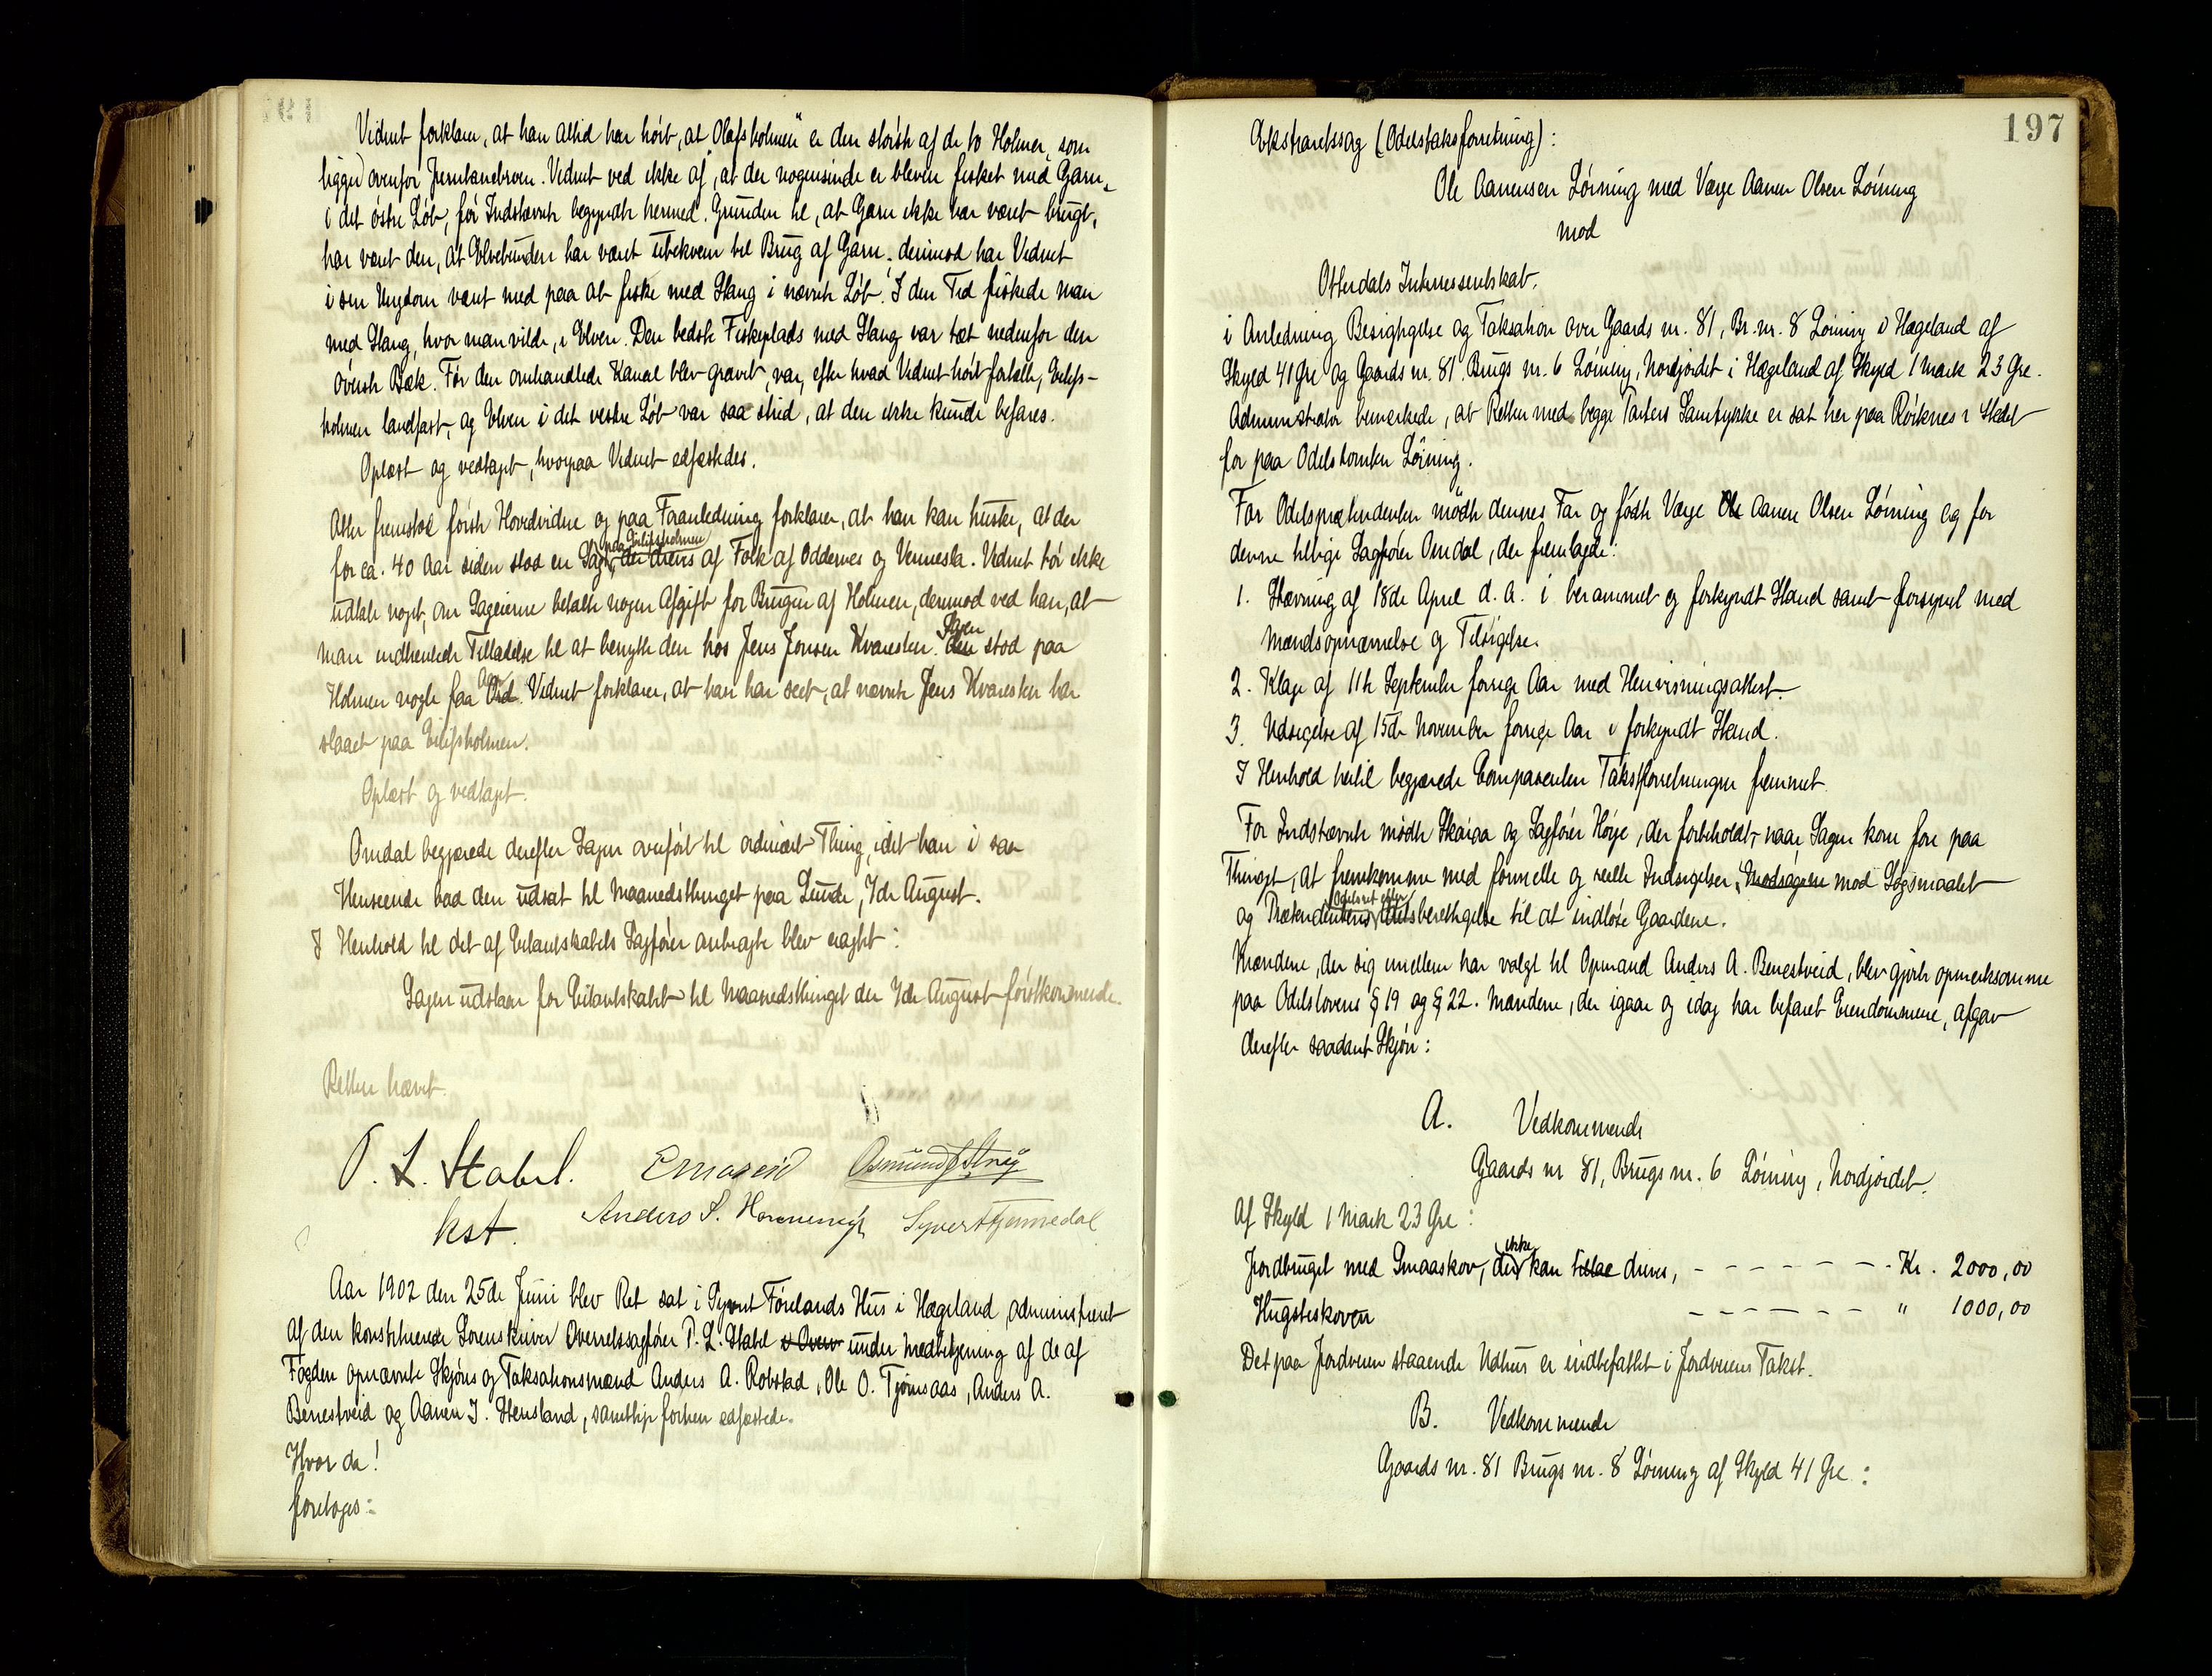 Vidnet forklarer, at han altid har hørt, at „Olafsholmen" er den største af de to Holmer, som
ligger ovenfor Jernbanebroen. Vidnet ved ikke af, at der nogensinde er bleven fisket med Garn
i det østre Løb, før Indstævnte begyndte hermed. Grunden til, at Garn ikke har været brugt,
har været den, at Elvebunden har været ubekvem til Brug af Garn; derimod har Vidnet
i sin Ungdom været med paa at fiske med Stang i nævnte Løb. I den Tid fiskede man
med Stang, hvor man vilde, i Elven. Den bedste Fiskeplads med Stang var tæt nedenfor den
øverste Bæk. Før den omhandlede Kanal blev gravet, var, efter hvad Vidnet hørt fortælle, Eilefs-
holmen landfast, og Elven i det vestre Løb var saa strid, at den ikke kunde befares.
Oplæst og vedtaget, hvorpaa Vidnet edfæstedes.
Atter fremstod første Hovedvidne og paa Foranledning forklarer, at han kan huske, at der
for ca. 40 Aar siden stod en Sag paa Eilifsholmen der dreves af Folk af Oddernes og Vennesla. Vidnet tør ikke
udtale noget, om Sageierne betalte nogen Afgift for Brugen af Holmen, derimod ved han, at
man indhentede Tilladelse til at benytte den hos Jens Jonsen Kvarestein. den Sagen stod paa
Holmen nogle faa Ord Aar. Vidnet forklarer, at han har seet, at nævnte Jens Kvarestein har
slaaet paa Eilifsholmen.
Oplæst og vedtaget.
Omdal begjærede derefter Sagen overført til ordinært Thing, idet han i saa
Henseende bad den udsat til Maanedsthinget paa Lunde, 7de August.
I Henhold til det af Citantskabets Sagfører anbragte blev eragtet:
Sagen udstaar for Citantskabet til Maanedsthinget den 7de August førstkommende.
Retten hævet.
P. L. Stabel.
kst.
Anders S. Homme
Aar 1902 den 25de Juni blev Ret sat i Syvert Førelands Hus i Hægeland, administreret
af den konstituerede Sorenskriver Overretssagfører P. L. Stabel under Medbetjening af de af
Fogden opnævnte Skjøns og Taksationsmænd Anders A. Robstad, Ole O. Tjømsaas, Anders A.
Benestveid og Aanen J. Stensland, samtlige forhen edfæstede.
Hvor da!
foretoges:
197
Ekstraretssag (Odelstaksforretning):
Ole Aanensen Løining med Værge Aanen Olsen Løining
mod
Otterdals Interessentskab.
i Anledning Besigtigelse og Taksation over Gaards nr. 81, Br. nr. 8 Løining i Hægeland af
Skyld 41 Øre og Gaards nr. 81. Brugs nr. 6 Løining, Nordjordet i Hægeland af Skyld 1 Mark 23 Øre.
Administrator bemærkede, at Retten med begge Parters Samtykke er sat her paa Røiknes i Stedet
for paa Odelstomten Løining.
For Odelsprætendenten mødte dennes Far og fødte Værge Ole Aanen Olsen Løining og for
denne tillige Sagfører Omdal, der fremlagde:
1. Stævning af 18de April d. A. i berammet og forkyndt Stand samt forsynet med
Mandsopnævnelse og Tilsigelse.
2. Klage af 11te September forrige Aar med Henvisningsattest.
3. Udsigelse af 15de November forrige Aar i forkyndt Stand.
I Henhold hertil begjærede Comparenten Takstforretningen fremmet.
For Indstævnte mødte Skaiaa og Sagfører Høye, der forbeholdt, naar Sagen kom fore paa
Thinget, at fremkomme med formelle og reelle Indsigelser, Modsigelse mod Søgsmaalet
og Prætendentens Odelsret eller Odelsberettigelse til at indløse Gaardene.
Mændene, der sig imellem har valgt til Opmand Anders A. Benestveid, blev gjorte opmerksomme
paa Odelslovens § 19 og § 22. Mændene, der igaar og idag har befaret Eiendommene, afgav
derefter saadant Skjøn:
A. Vedkommende
Gaards nr 81, Brugs nr. 6 Løining, Nordjordet.
Af Skyld 1 Mark 23 Øre:
Jordbruget med Smaaskov, der ikke kan drives, - - - - - - - Kr. 2000,00
Hugsteskoven - - - - - - - " 1000,00
Det paa Jordveien staaende Udhus er indbefattet i Jordveiens Takst.
B. Vedkommende
Gaards nr. 81 Brugs nr. 8 Løining af Skyld 41 Øre: